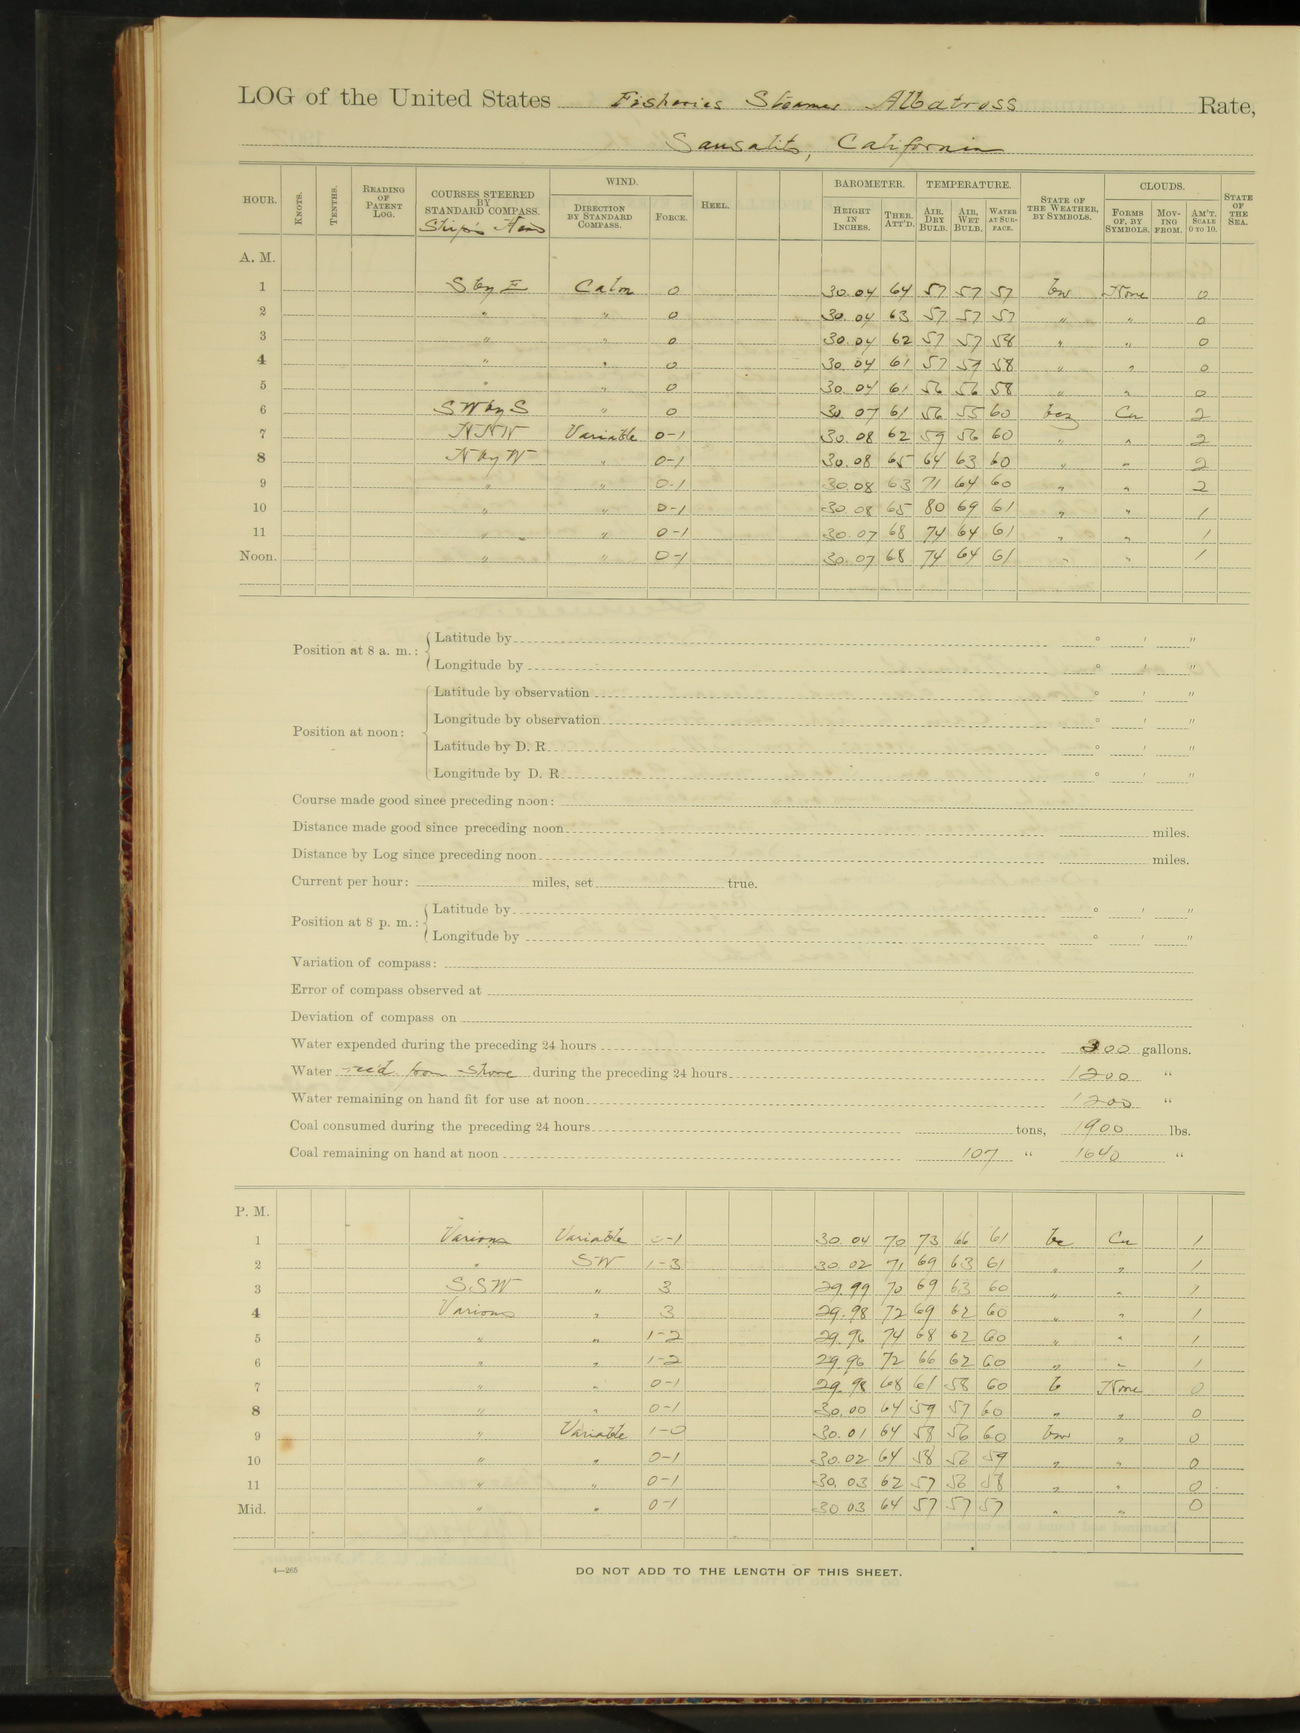 LOG of the United States Fisheries Steamer Albatross Rate,
Sausalito, California
HOUR. KNOTS. TENTHS. READING OF PATENT LOG. COURSES STEERED BY STANDARD COMPASS. Ship's Head WIND. DIRECTION BY STANDARD COMPASS. FORCE. HEEL. BAROMETER. HEIGHT IN INCHES. THER. ATT'D. TEMPERATURE. AIR, DRY BULB. AIR, WET BULB. WATER AT SURFACE. STATE OF THE WEATHER, BY SYMBOLS. CLOUDS. FORMS OF, BY SYMBOLS. MOVING FROM. AM'T. SCALE 0 TO 10. STATE OF THE SEA.
A. M.
1 S by E Calm 0 30.04 64 57 57 57 bw None 0
2 " " 0 30.04 63 57 57 57 " " 0
3 " " 0 30.04 62 57 57 58 " " 0
4 " " 0 30.04 61 57 57 58 " " 0
5 " " 0 30.04 61 56 56 58 " " 0
6 SW by S " 0 30.07 61 56 55 60 bcz Cu 2
7 NNW Variable 0-1 30.08 62 59 56 60 " " 2
8 N by W " 0-1 30.08 65 64 63 60 " " 2
9 " " 0-1 30.08 63 71 64 60 " " 2
10 " " 0-1 30.08 65 80 69 61 " " 1
11 " " 0-1 30.07 68 74 64 61 " " 1
Noon. " " 0-1 30.07 68 74 64 61 " " 1
Position at 8 a. m.: Latitude by ° ′ ″
Longitude by ° ′ ″
Position at noon: Latitude by observation ° ′ ″
Longitude by observation ° ′ ″
Latitude by D. R. ° ′ ″
Longitude by D. R. ° ′ ″
Course made good since preceding noon:
Distance made good since preceding noon miles.
Distance by Log since preceding noon miles.
Current per hour: miles, set true.
Position at 8 p. m.: Latitude by ° ′ ″
Longitude by ° ′ ″
Variation of compass:
Error of compass observed at
Deviation of compass on
Water expended during the preceding 24 hours 300 gallons.
Water rec'd from shore during the preceding 24 hours 1200 "
Water remaining on hand fit for use at noon 1200 "
Coal consumed during the preceding 24 hours tons, 1900 lbs.
Coal remaining on hand at noon 107 " 1640 "
P. M.
1 Various Variable 0-1 30.04 70 73 66 61 bc Cu 1
2 " SW 1-3 30.02 71 69 63 61 " " 1
3 SSW " 3 29.99 70 69 63 60 " " 1
4 Various " 3 29.98 72 69 62 60 " " 1
5 " " 1-2 29.96 74 68 62 60 " " 1
6 " " 1-2 29.96 72 66 62 60 " " 1
7 " " 0-1 29.98 68 61 58 60 b None 0
8 " " 0-1 30.00 64 59 57 60 " " 0
9 " Variable 1-0 30.01 64 58 56 60 bw " 0
10 " " 0-1 30.02 64 58 56 59 " " 0
11 " " 0-1 30.03 62 57 56 58 " " 0
Mid. " " 0-1 30.03 64 57 57 57 " " 0
4—265
DO NOT ADD TO THE LENGTH OF THIS SHEET.